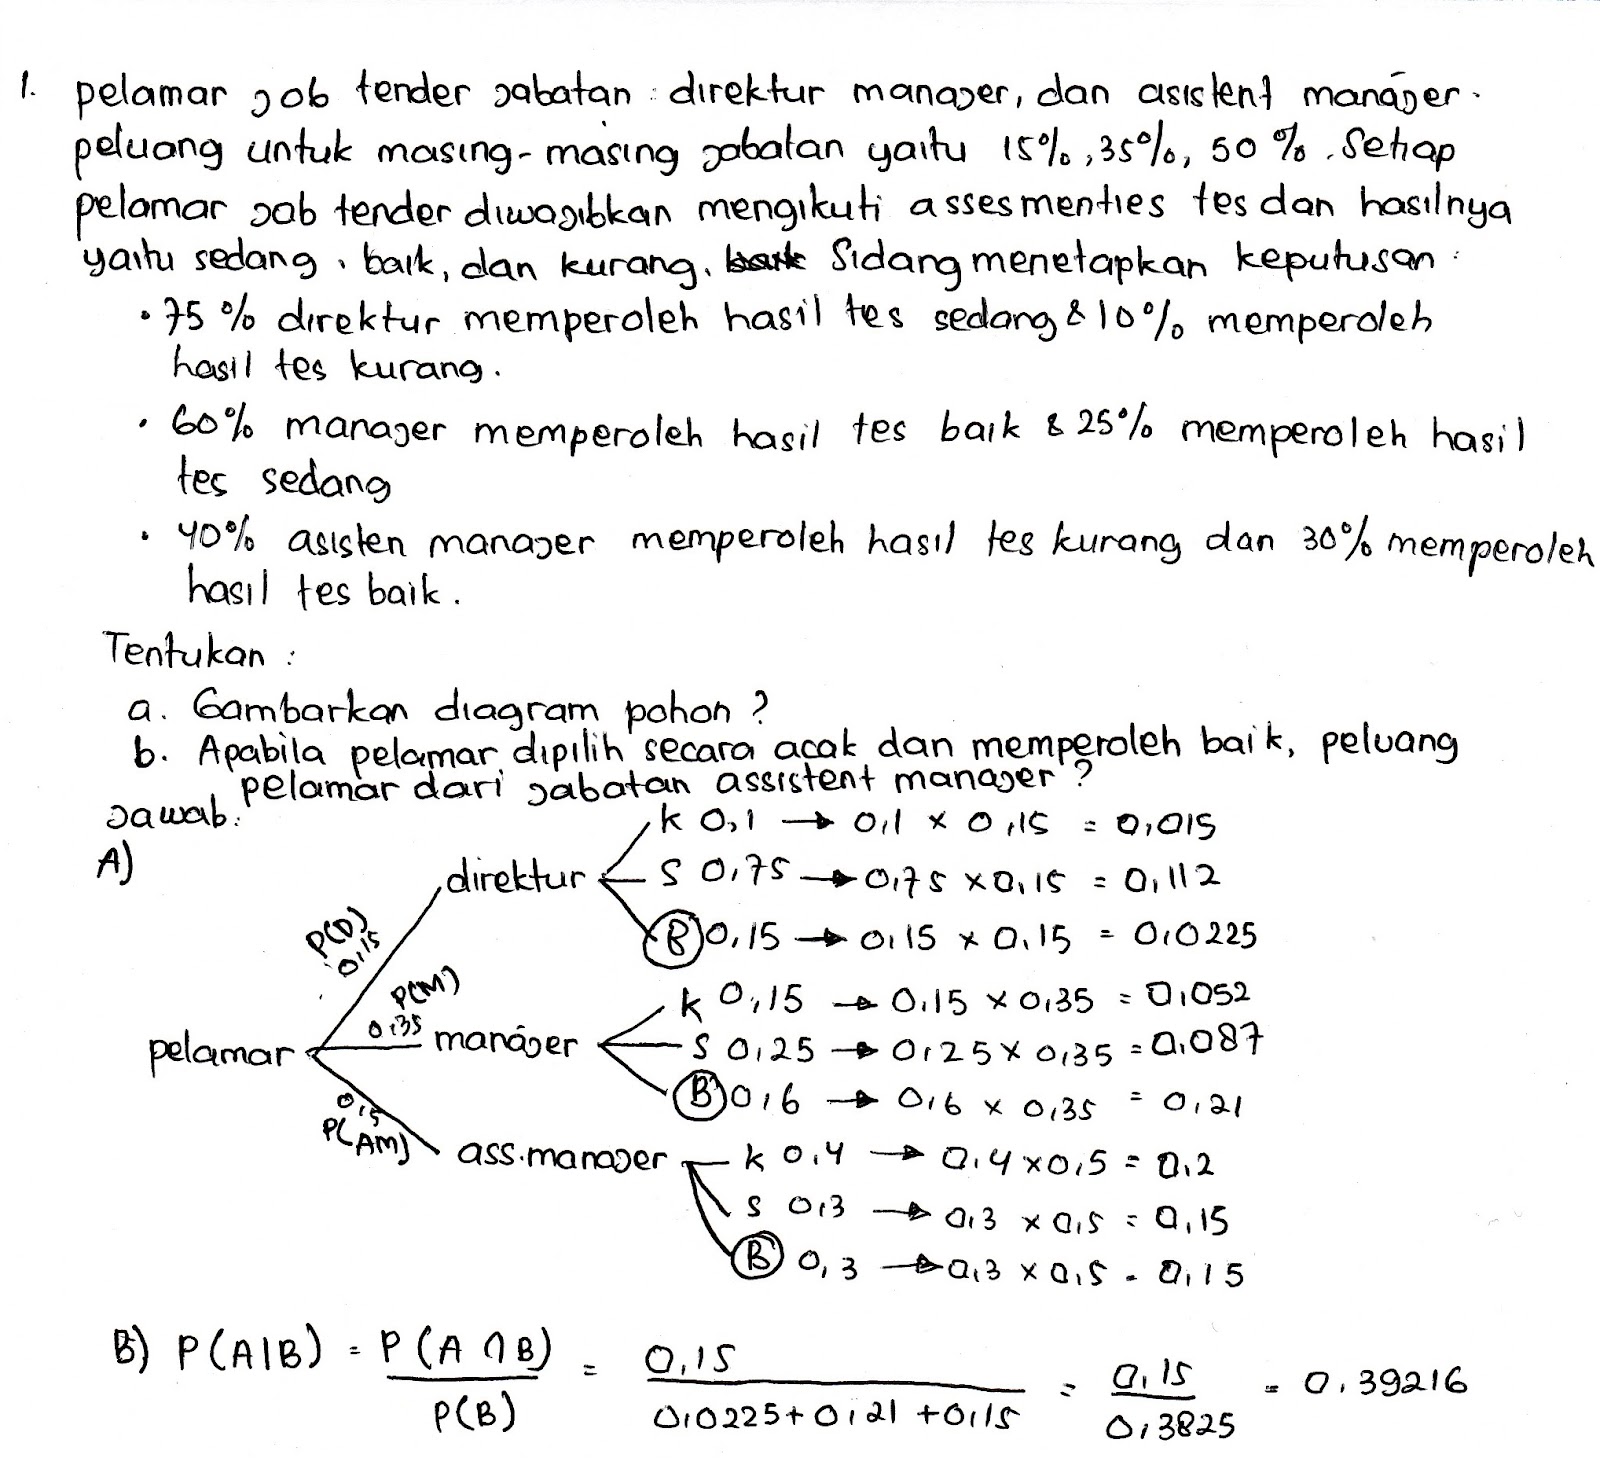 1. pelamar job tender jabatan : direktur manajer, dan asistent manajer.
peluang untuk masing-masing jabatan yaitu 15%, 35%, 50%. Setiap
pelamar job tender diwajibkan mengikuti assesmenties tes dan hasilnya
yaitu sedang, baik, dan kurang. Sidang menetapkan keputusan :
• 75% direktur memperoleh hasil tes sedang & 10% memperoleh
hasil tes kurang.
• 60% manajer memperoleh hasil tes baik & 25% memperoleh hasil
tes sedang
• 40% asisten manajer memperoleh hasil tes kurang dan 30% memperoleh
hasil tes baik.
Tentukan :
a. Gambarkan diagram pohon ?
b. Apabila pelamar dipilih secara acak dan memperoleh baik, peluang
pelamar dari jabatan assistent manajer ?
Jawab:
A)
pelamar
P(D) 0,15
direktur
k 0,1 → 0,1 x 0,15 = 0,015
S 0,75 → 0,75 x 0,15 = 0,112
B 0,15 → 0,15 x 0,15 = 0,0225
P(M) 0,35
manajer
k 0,15 → 0,15 x 0,35 = 0,052
S 0,25 → 0,25 x 0,35 = 0,087
B 0,6 → 0,6 x 0,35 = 0,21
0,5 P(AM)
ass.manajer
k 0,4 → 0,4 x 0,5 = 0,2
S 0,3 → 0,3 x 0,5 = 0,15
B 0,3 → 0,3 x 0,5 = 0,15
B) P(A|B) = P(A ∩ B) / P(B) = 0,15 / 0,0225 + 0,21 + 0,15 = 0,15 / 0,3825 = 0,39216